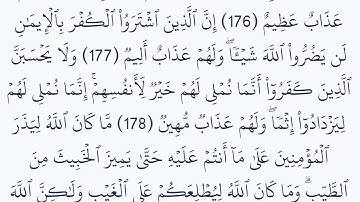 عَذَابٌ عَظِيمٌ (176) إِنَّ ٱلَّذِينَ ٱشْتَرَوُا۟ ٱلْكُفْرَ بِٱلْإِيمَٰنِ
لَن يَضُرُّوا۟ ٱللَّهَ شَيْـًٔا ۖ وَلَهُمْ عَذَابٌ أَلِيمٌ (177) وَلَا يَحْسَبَنَّ
ٱلَّذِينَ كَفَرُوٓا۟ أَنَّمَا نُمْلِى لَهُمْ خَيْرٌ لِّأَنفُسِهِمْ ۚ إِنَّمَا نُمْلِى لَهُمْ
لِيَزْدَادُوٓا۟ إِثْمًا ۖ وَلَهُمْ عَذَابٌ مُّهِينٌ (178) مَّا كَانَ ٱللَّهُ لِيَذَرَ
ٱلْمُؤْمِنِينَ عَلَىٰ مَآ أَنتُمْ عَلَيْهِ حَتَّىٰ يَمِيزَ ٱلْخَبِيثَ مِنَ
ٱلطَّيِّبِ ۗ وَمَا كَانَ ٱللَّهُ لِيُطْلِعَكُمْ عَلَى ٱلْغَيْبِ وَلَٰكِنَّ ٱللَّهَ